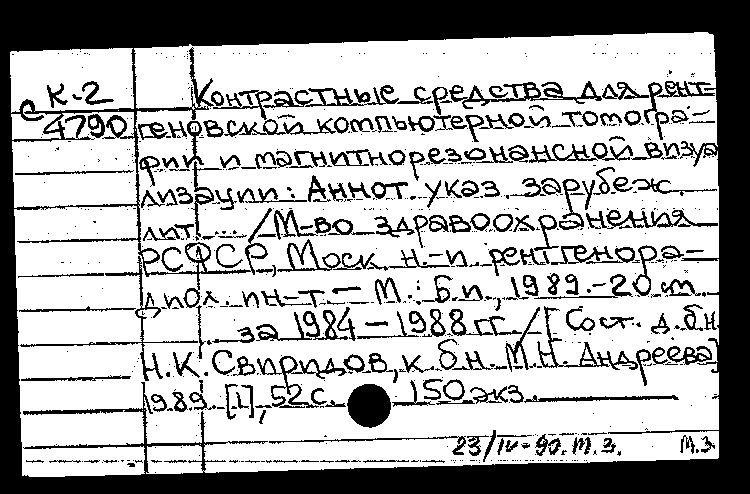 с К-2 Контрастные средства для рент=
4790 геновской компьютерной томогра-
фии и магнитнорезонансной визуа
лизации: Аннот. указ. зарубеж.
лит. ... /М-во здравоохранения
РСФСР, Моск. н.-и. рентгенора-
диол. ин-т. — М.: Б.и., 1989.-20 см
за 1984 — 1988 гг. /[Сост. д.б.н.
Н.К. Свиридов, к.б.н. М.Н. Андреева]
1989. [1], 52 с. 150 экз.
23/IV-90. М.З. М.З.